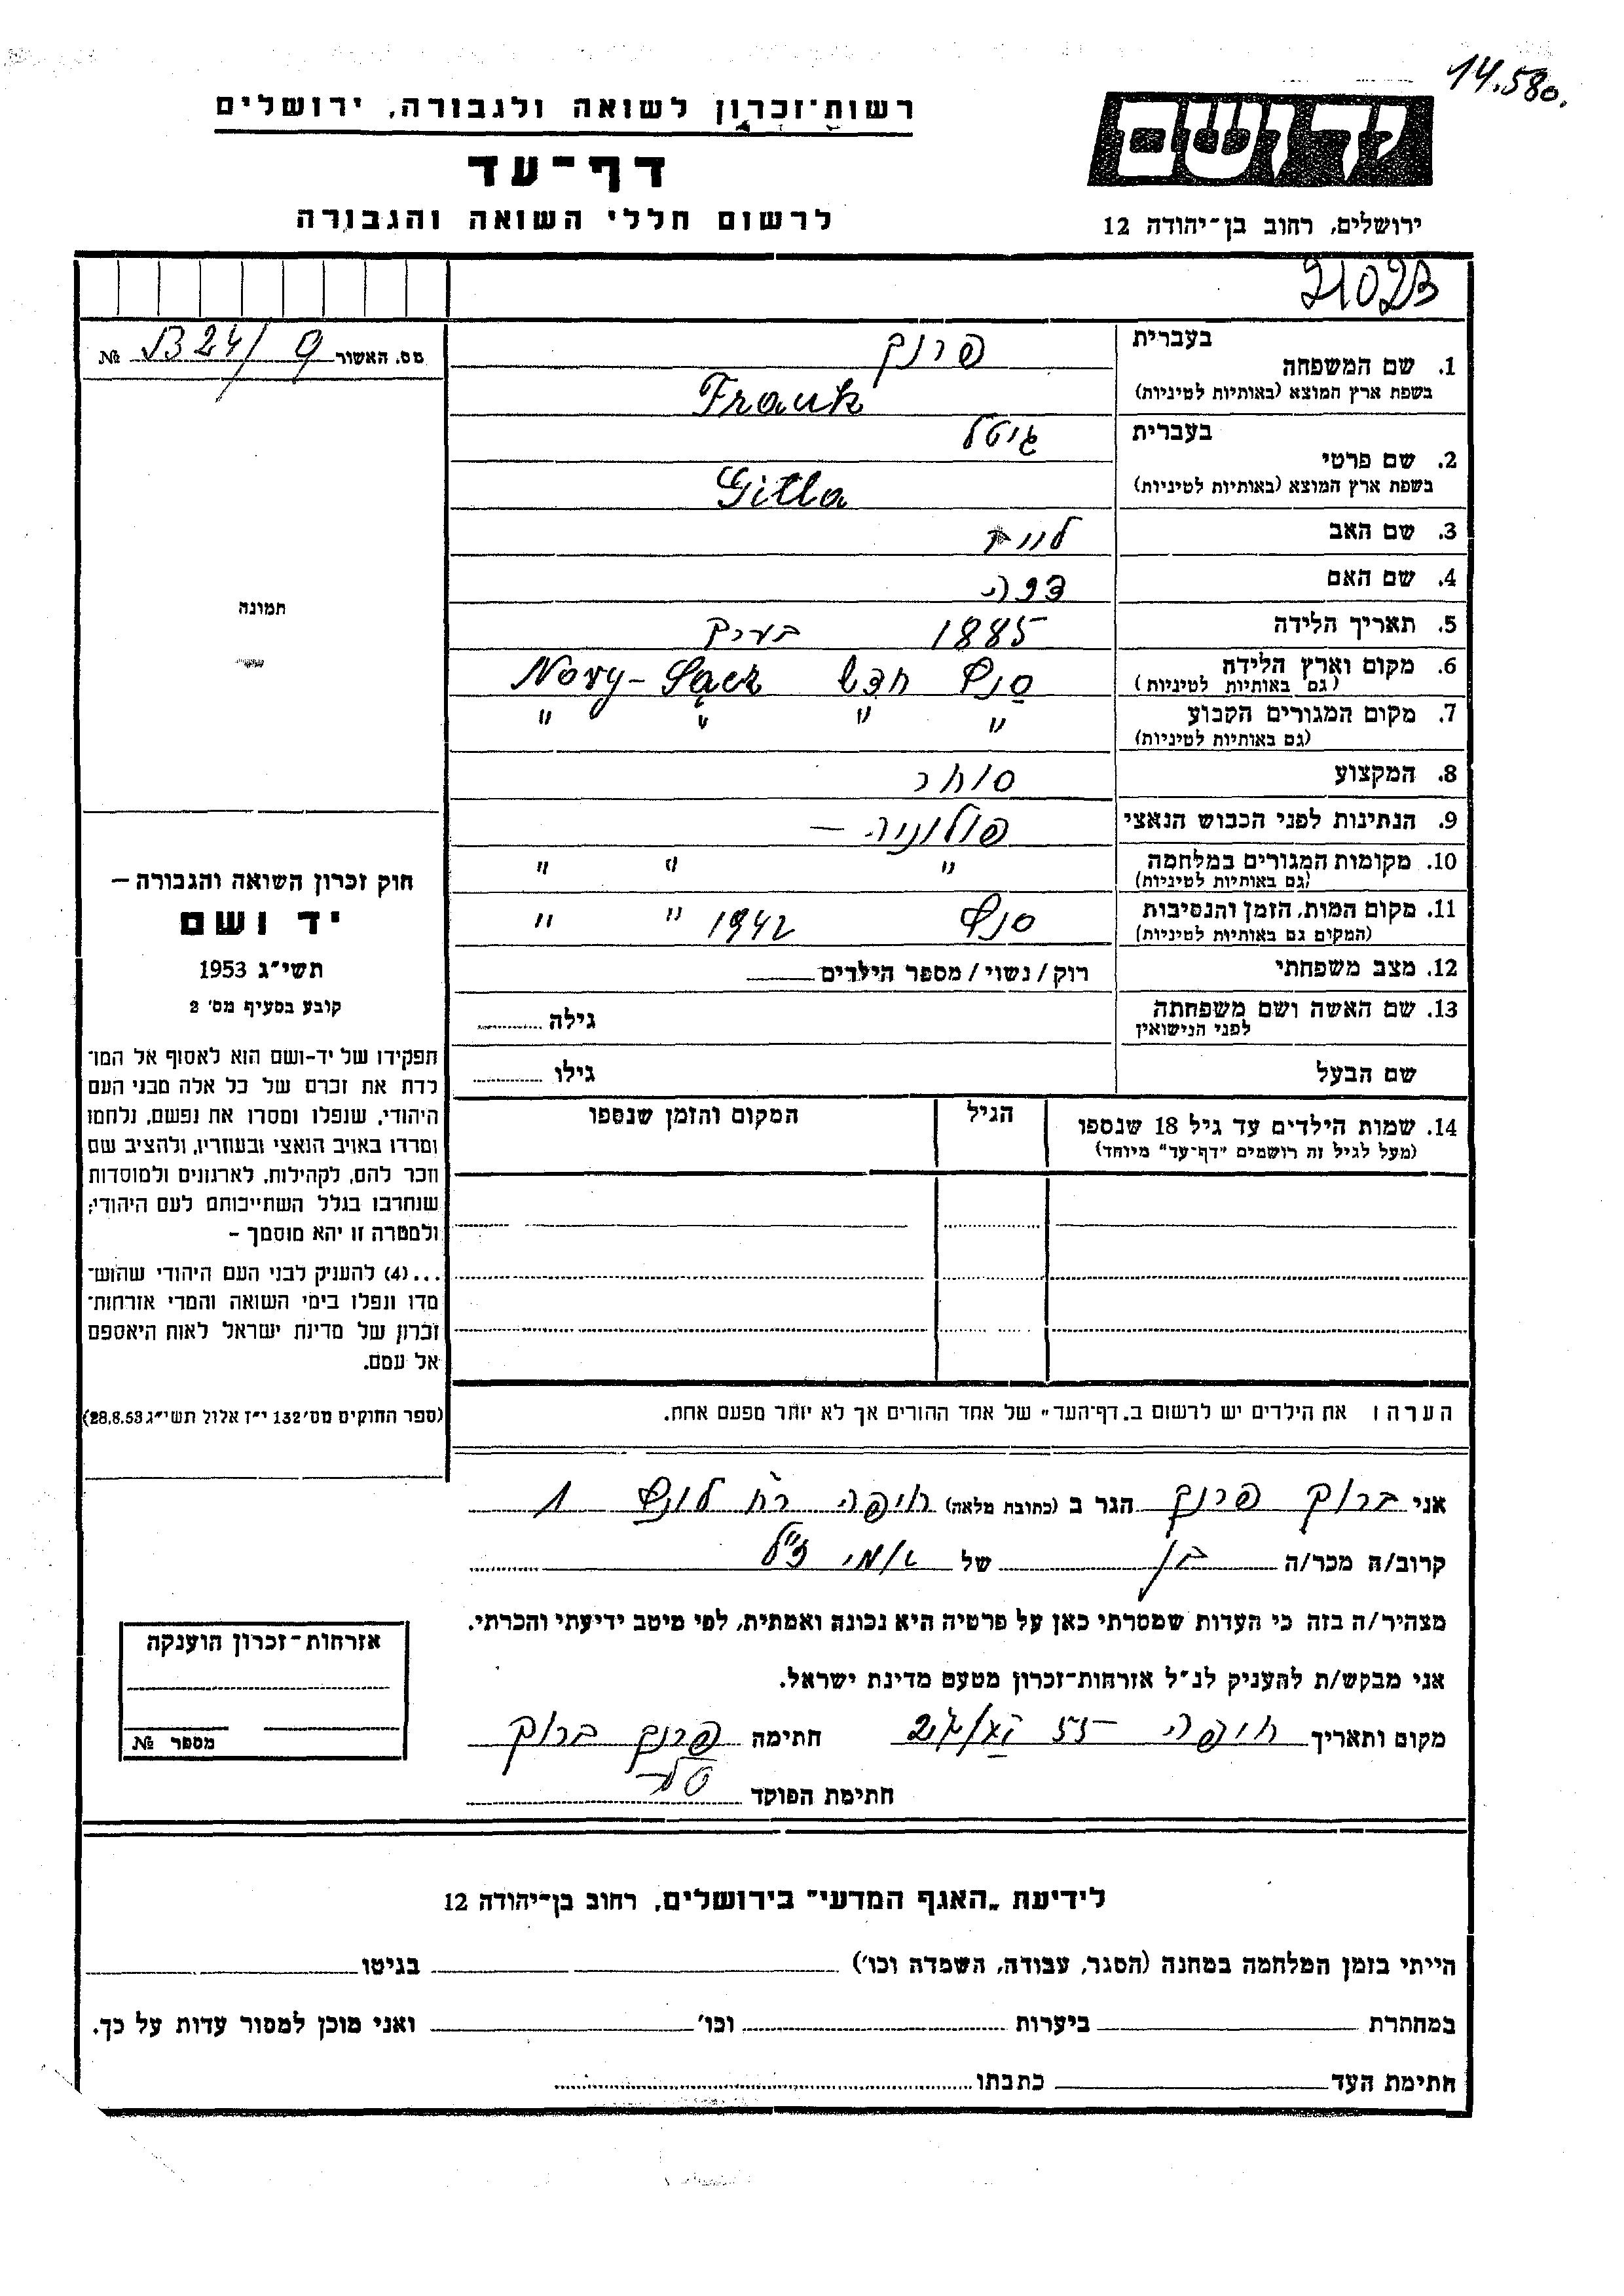 14.580.
רשות־זכרון לשואה ולגבורה, ירושלים
דף־עד
לרשום חללי השואה והגבורה
יד ושם
ירושלים, רחוב בן־יהודה 12
2102B
מס. האשור № B24/9
בעברית
1. שם המשפחה פרנק
בשפת ארץ המוצא (באותיות לטיניות) Frank
בעברית גיטל
2. שם פרטי
בשפת ארץ המוצא (באותיות לטיניות) Gitla
3. שם האב
4. שם האם
5. תאריך הלידה 1885
6. מקום וארץ הלידה סנץ חדש Novy-Sącz
(גם באותיות לטיניות)
7. מקום המגורים הקבוע " " " "
(גם באותיות לטיניות)
8. המקצוע סוחר
9. הנתינות לפני הכבוש הנאצי פולוניה –
10. מקומות המגורים במלחמה " " "
(גם באותיות לטיניות)
11. מקום המות, הזמן והנסיבות סנץ 1942 " "
(המקום גם באותיות לטיניות)
12. מצב משפחתי רוק/נשוי/מספר הילדים
13. שם האשה ושם משפחתה גילה
לפני הנישואין
שם הבעל גילו
14. שמות הילדים עד גיל 18 שנספו הגיל המקום והזמן שנספו
(מעל לגיל זה רושמים "דף־עד" מיוחד)
הערה: את הילדים יש לרשום ב„דף־העד" של אחד ההורים אך לא יותר מפעם אחת.
תמונה
חוק זכרון השואה והגבורה –
יד ושם
תשי"ג 1953
קובע בסעיף מס' 2
תפקידו של יד-ושם הוא לאסוף אל המו־
לדת את זכרם של כל אלה מבני העם
היהודי, שנפלו ומסרו את נפשם, נלחמו
ומרדו באויב הנאצי ובעוזריו, ולהציב שם
וזכר להם, לקהילות, לארגונים ולמוסדות
שנחרבו בגלל השתייכותם לעם היהודי;
ולמטרה זו יהא מוסמך –
...(4) להעניק לבני העם היהודי שהוש־
מדו ונפלו בימי השואה והמרי אזרחות־
זכרון של מדינת ישראל לאות היאספם
אל עמם.
(ספר החוקים מס' 132 י"ז אלול תשי"ג 28.8.53)
אני ברוך פרנק הגר ב (כתובת מלאה) חיפה רח לונץ 1
קרוב/ה מכר/ה בן של אמי ז"ל
מצהיר/ה בזה כי העדות שמסרתי כאן על פרטיה היא נכונה ואמתית, לפי מיטב ידיעתי והכרתי.
אני מבקש/ת להעניק לנ"ל אזרחות־זכרון מטעם מדינת ישראל.
מקום ותאריך חיפה 55 חתימה פרנק ברוך
חתימת הפוקד
אזרחות־זכרון הוענקה
מספר №
לידיעת „האגף המדעי" בירושלים, רחוב בן־יהודה 12
הייתי בזמן המלחמה במחנה (הסגר, עבודה, השמדה וכו') בגיטו
במחתרת ביערות וכו' ואני מוכן למסור עדות על כך.
חתימת העד כתבתו